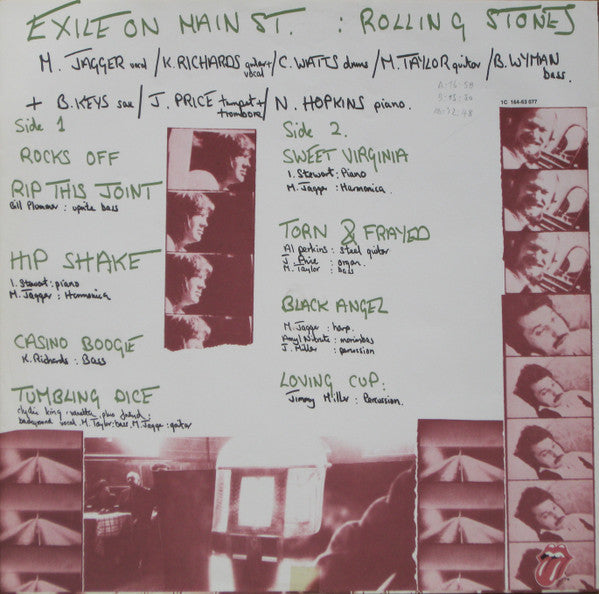 EXILE ON MAIN ST. : ROLLING STONES
M. JAGGER vocal / K. RICHARDS guitar + vocal / C. WATTS drums / M. TAYLOR guitar / B. WYMAN bass.
+ B. KEYS sax / J. PRICE trumpet + trombone / N. HOPKINS piano.
1C 164-63 077
Side 1
ROCKS OFF
RIP THIS JOINT
Bill Plummer : uprite bass
HIP SHAKE
I. Stewart : piano
M. Jagger : Harmonica
CASINO BOOGIE
K. Richards : Bass
TUMBLING DICE
clydie king, vanetta, plus friend :
background vocal. M. Taylor: bass, M. Jagger : guitar
Side 2.
SWEET VIRGINIA
I. Stewart : Piano
M. Jagger : Harmonica.
TORN & FRAYED
Al perkins : steel guitar
J. Price : organ.
M. Taylor : bass
BLACK ANGEL
M. Jagger : harp.
Amyl Nitrate : marimbas
J. Miller : percussion
LOVING CUP :
Jimmy Miller : Percussion.